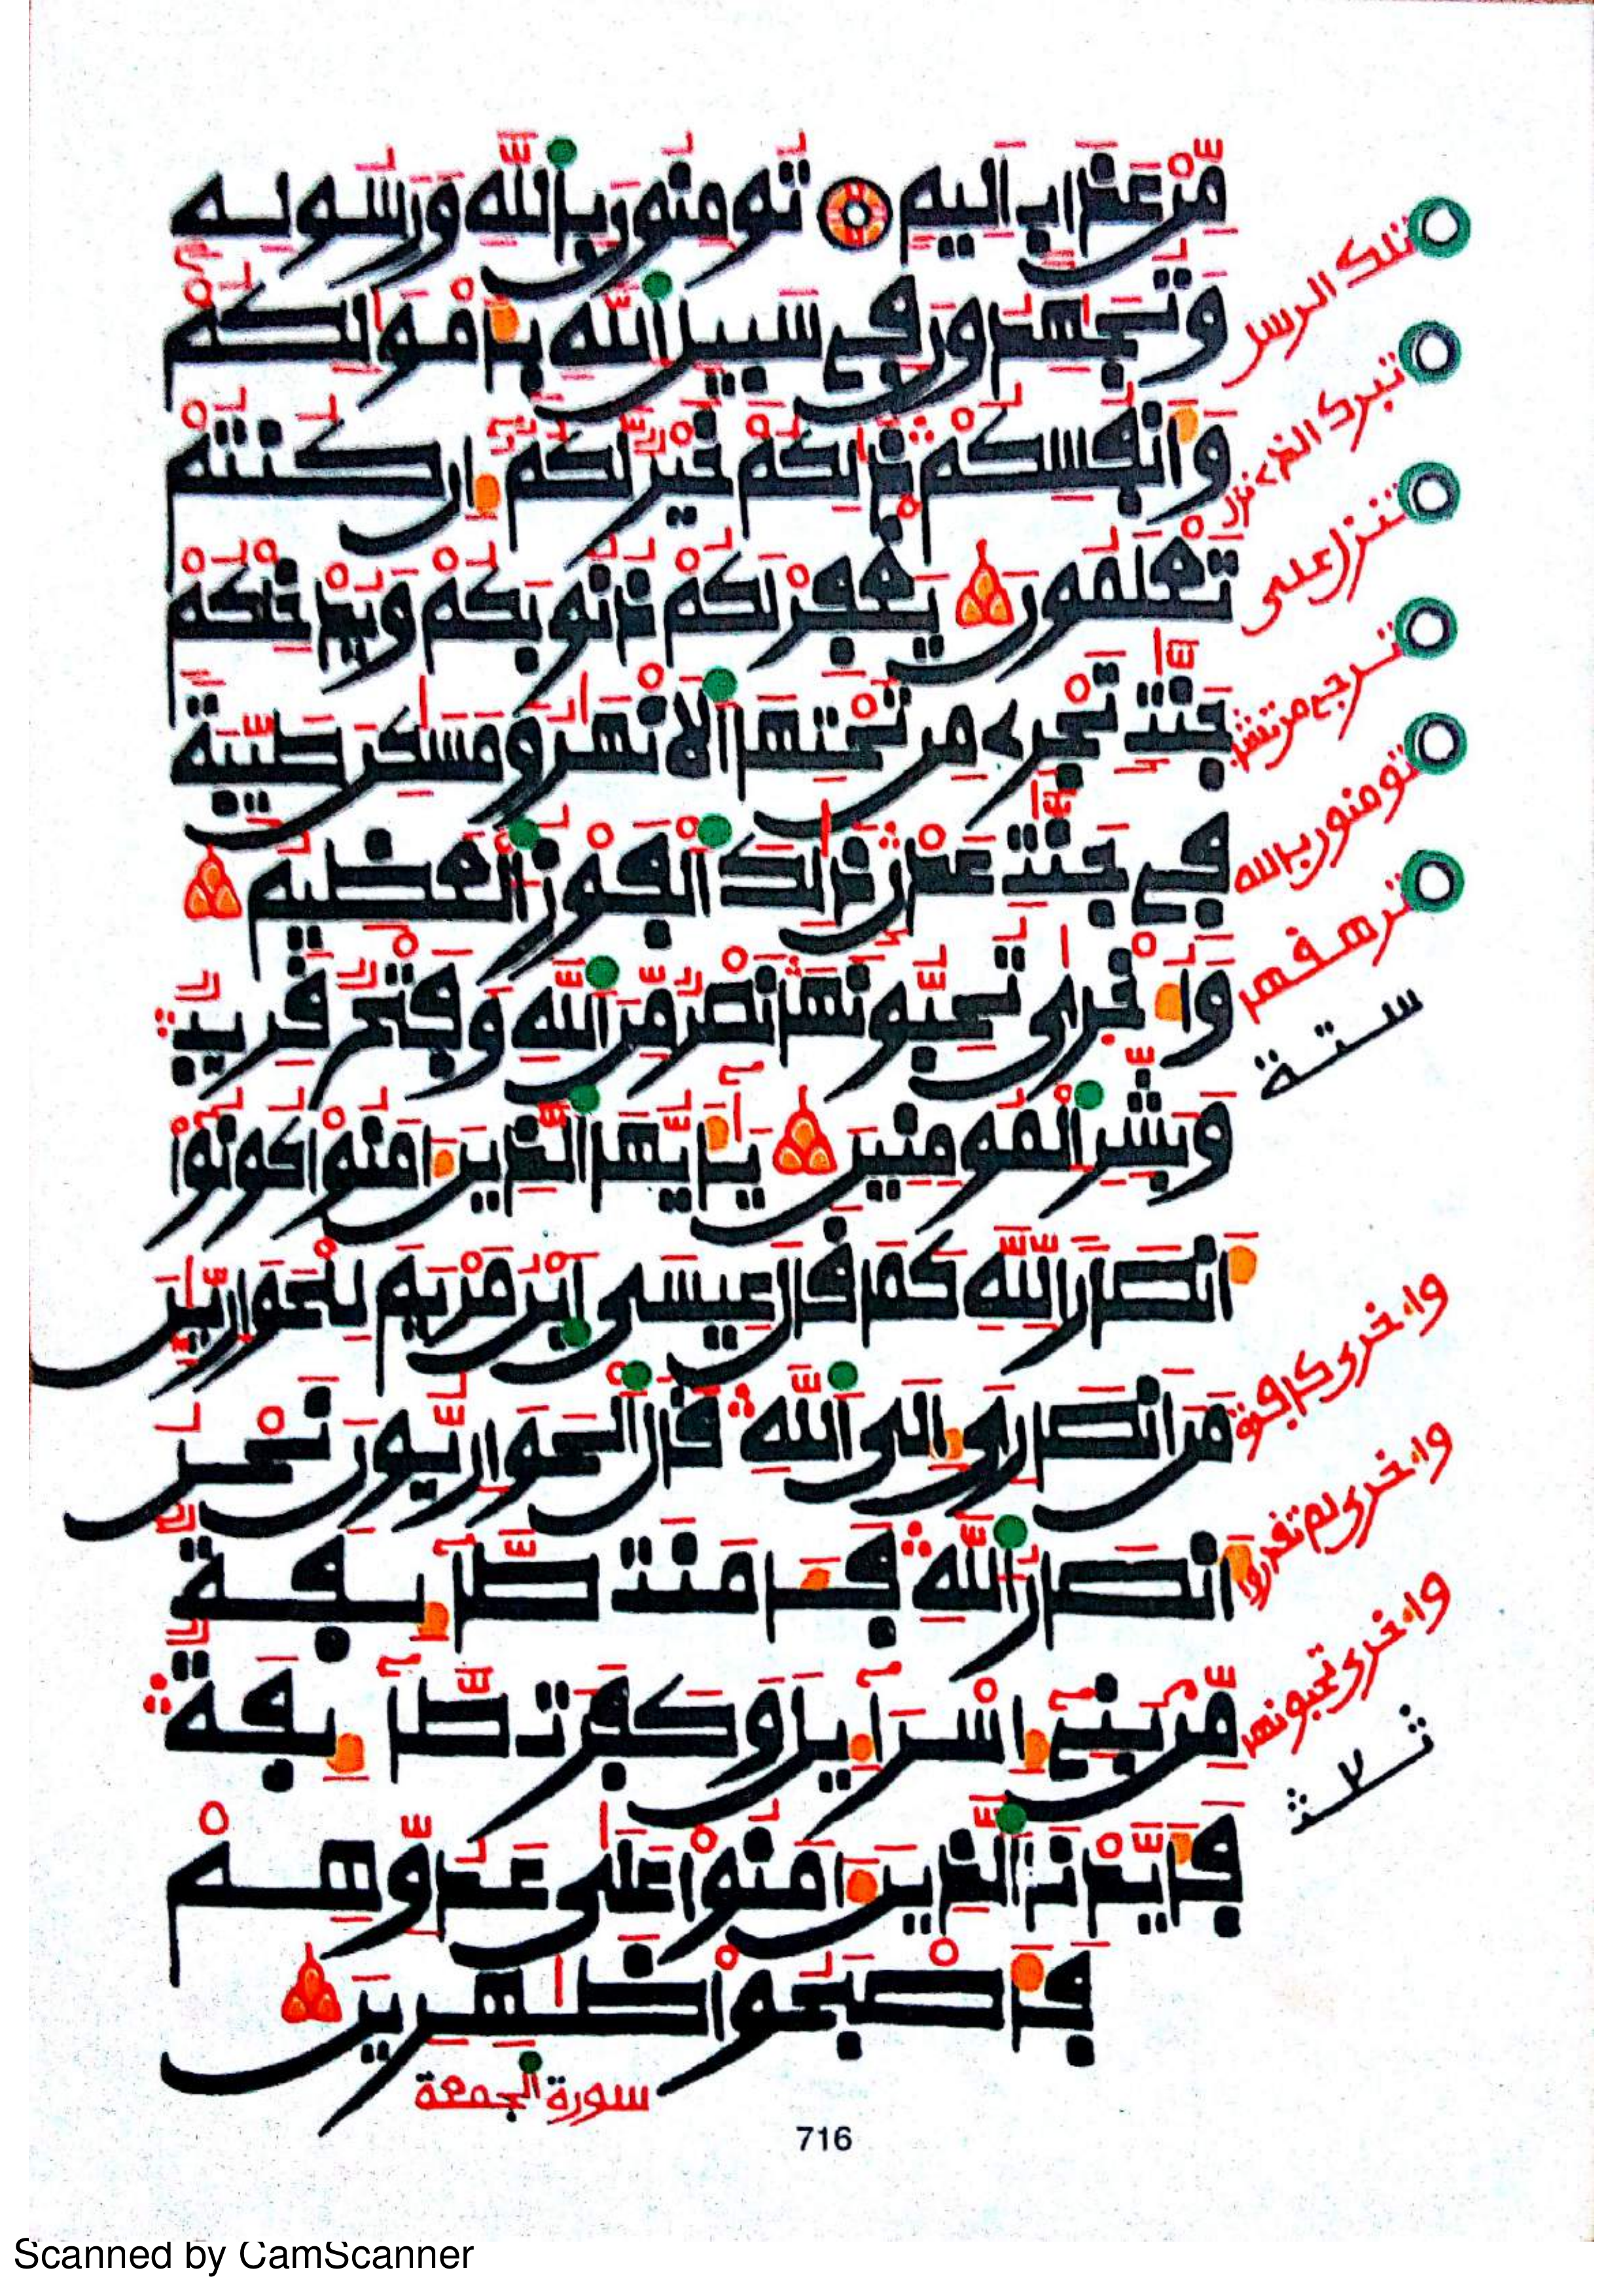 مِّنْ عَذَابٍ اَلِيمٍ تُومِنُونَ بِاللَّهِ وَرَسُولِهِ
وَتُجَٰهِدُونَ فِي سَبِيلِ اِللَّهِ بِأَمْوَٰلِكُمْ
وَأَنفُسِكُمْ ذَٰلِكُمْ خَيْرٌ لَّكُمُ إِن كُنتُمْ
تَعْلَمُونَ يَغْفِرْ لَكُمْ ذُنُوبَكُمْ وَيُدْخِلْكُمْ
جَنَّٰتٍ تَجْرِي مِن تَحْتِهَا اَلَانْهَٰرُ وَمَسَٰكِنَ طَيِّبَةً
فِي جَنَّٰتِ عَدْنٍ ذَٰلِكَ اَلْفَوْزُ اُلْعَظِيمُ
وَأُخْرَىٰ تُحِبُّونَهَا نَصْرٌ مِّنَ اَللَّهِ وَفَتْحٌ قَرِيبٌ
وَبَشِّرِ اِلْمُومِنِينَ يَٰأَيُّهَا اَلذِينَ ءَامَنُوا كُونُوا
أَنصَارًا لِلَّهِ كَمَا قَالَ عِيسَى اَبْنُ مَرْيَمَ لِلْحَوَارِيِّينَ
مَنَ اَنصَارِيَ إِلَى اَللَّهِ قَالَ اَلْحَوَارِيُّونَ نَحْنُ
أَنصَارُ اُللَّهِ فَـَٔامَنَت طَّآئِفَةٌ
مِّنۢ بَنِي إِسْرَآءِيلَ وَكَفَرَت طَّآئِفَةٌ
فَأَيَّدْنَا اَلذِينَ ءَامَنُوا عَلَىٰ عَدُوِّهِمْ
فَأَصْبَحُوا ظَٰهِرِينَ
سورة الجمعة
تلك الرسل
تبرك الذي نزل
تنزل على
تومنون بالله
ستة
وأخرى تحبونها
716
Scanned by CamScanner